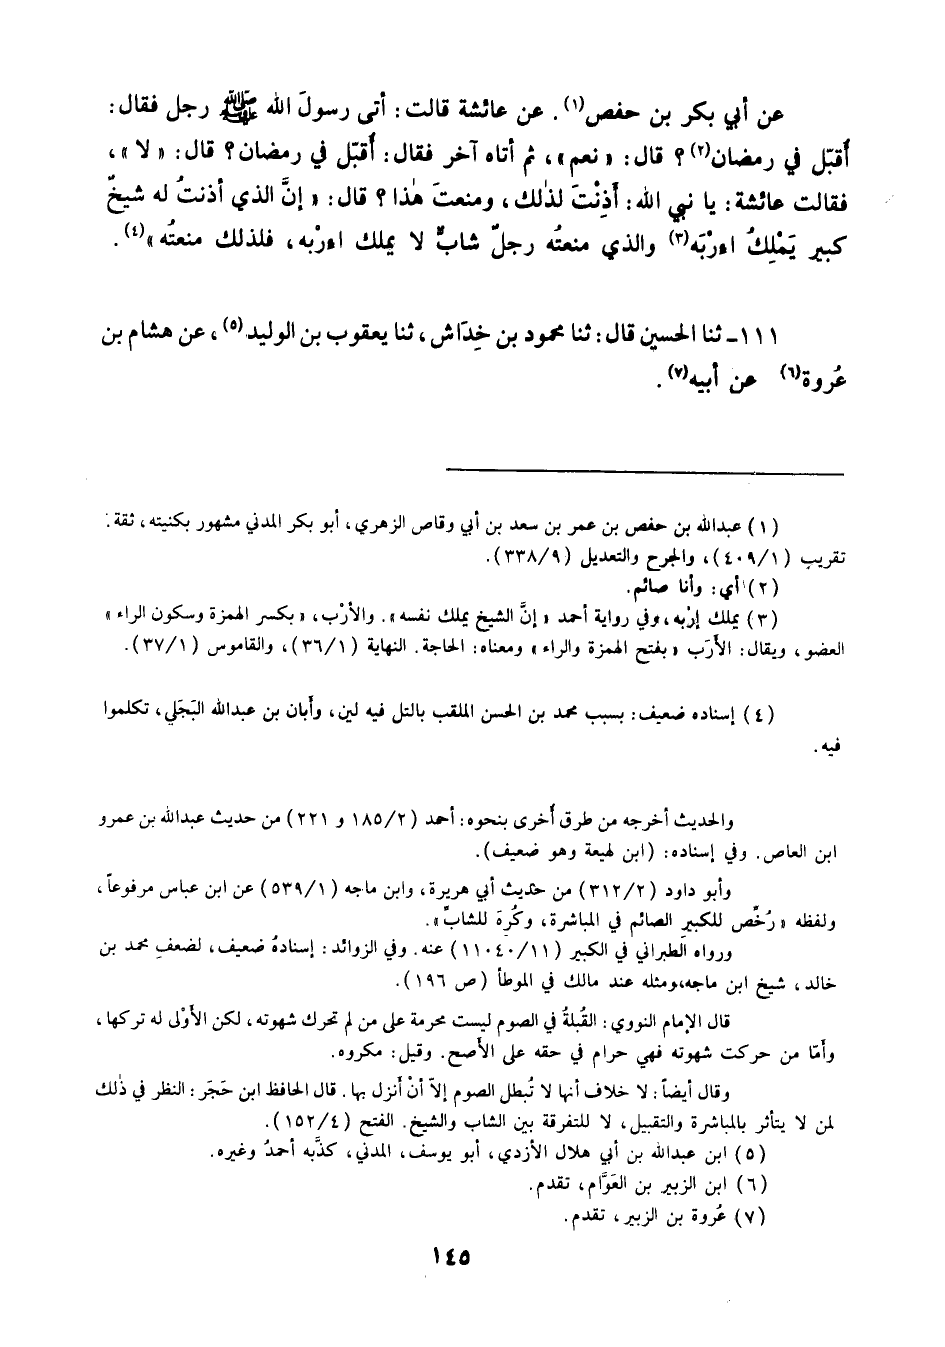 عن أبي بكر بن حفص(١). عن عائشة قالت: أتى رسولَ الله ﷺ رجل فقال:
أُقبّل في رمضان(٢)؟ قال: «نعم»، ثم أتاه آخر فقال: أُقبّل في رمضان؟ قال: «لا»،
فقالت عائشة: يا نبي الله: أذِنْتَ لذٰلك، ومنعتَ هٰذا؟ قال: «إنَّ الذي أذنتُ له شيخٌ
كبير يَمْلِكُ اءرْبَه(٣) والذي منعتُه رجلٌ شابٌّ لا يملك اءرْبه، فلذلك منعتُه»(٤).
١١١ـ ثنا الحسين قال: ثنا محمود بن خِدَاش، ثنا يعقوب بن الوليد(٥)، عن هشام بن
عُروة(٦) عن أبيه(٧).
(١) عبدالله بن حفص بن عمر بن سعد بن أبي وقاص الزهري، أبو بكر المدني مشهور بكنيته، ثقة:
تقريب (٤٠٩/١)، والجرح والتعديل (٣٣٨/٩).
(٢) أي: وأنا صائم.
(٣) يملك إرْبه، وفي رواية أحمد «إنَّ الشيخ يملك نفسه». والأرْب، «بكسر الهمزة وسكون الراء»
العضو، ويقال: الأَرَب «بفتح الهمزة والراء» ومعناه: الحاجة. النهاية (٣٦/١)، والقاموس (٣٧/١).
(٤) إسناده ضعيف: بسبب محمد بن الحسن الملقب بالتل فيه لين، وأبان بن عبدالله البَجَلي، تكلموا
فيه.
والحديث أخرجه من طرق أخرى بنحوه: أحمد (١٨٥/٢ و ٢٢١) من حديث عبدالله بن عمرو
ابن العاص. وفي إسناده: (ابن لهيعة وهو ضعيف).
وأبو داود (٣١٢/٢) من حديث أبي هريرة، وابن ماجه (٥٣٩/١) عن ابن عباس مرفوعاً،
ولفظه «رُخِّص للكبير الصائم في المباشرة، وكُرِهَ للشابِّ».
ورواه الطبراني في الكبير (١١٠٤٠/١١) عنه. وفي الزوائد: إسنادهُ ضعيف، لضعفِ محمد بن
خالد، شيخ ابن ماجه، ومثله عند مالك في الموطأ (ص ١٩٦).
قال الإمام النووي: القُبلةُ في الصوم ليست محرمة على من لم تحرك شهوته، لكن الأَوْلى له تركها،
وأمّا من حركت شهوته فهي حرام في حقه على الأصح. وقيل: مكروه.
وقال أيضاً: لا خلاف أنها لا تُبطل الصوم إلاّ أنْ أنزل بها. قال الحافظ ابن حَجَر: النظر في ذٰلك
لمن لا يتأثر بالمباشرة والتقبيل، لا للتفرقة بين الشاب والشيخ. الفتح (١٥٢/٤).
(٥) ابن عبدالله بن أبي هلال الأزدي، أبو يوسف، المدني، كذَّبه أحمدُ وغيره.
(٦) ابن الزبير بن العَوَّام، تقدم.
(٧) عُروة بن الزبير، تقدم.
١٤٥